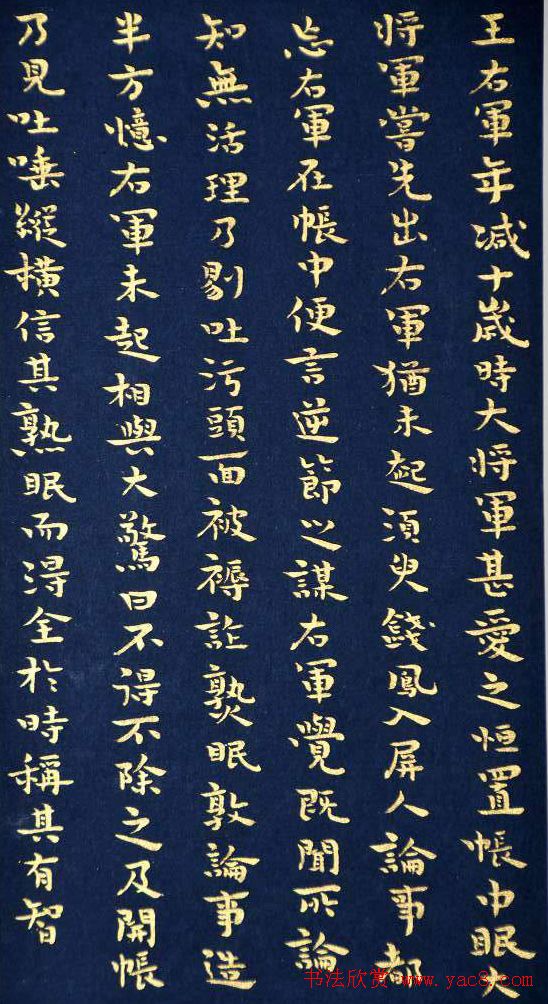 王右軍年減十歳時大將軍甚愛之恒置帳中眠大
將軍嘗先出右軍猶未起須臾錢鳳入屏人論事都
忘右軍在帳中便言逆節之謀右軍覺既聞所論
知無活理乃剔吐污頭面被褥詐熟眠敦論事造
半方憶右軍未起相與大驚曰不得不除之及開帳
乃見吐唾縱橫信其熟眠而得全於時稱其有智
书法欣赏 www.yac8.com